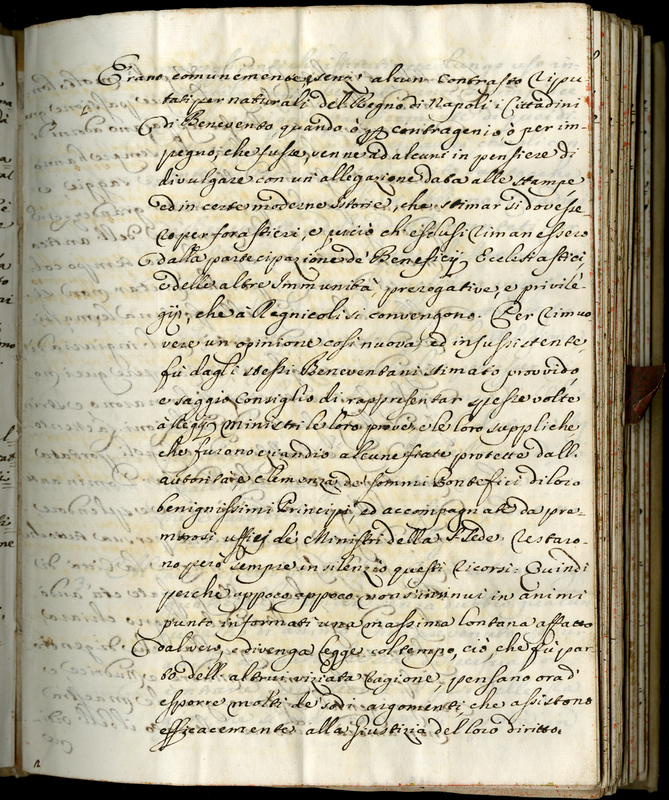 Erano comunemente, e senz' alcun contrasto ripu-
tati per naturali del Regno di Napoli i Cittadini
di Benevento, quando ò per contragenio, ò per im-
pegno, che fusse, venne ad alcuni in pensiere di
divulgare con un' allegazione data alle stampe
ed in certe moderne Istorie, che stimar si dovesse-
ro per forastieri, e perciò ch' esclusi rimanessero
dalla partecipazione de' Beneficij Ecclesiastici,
e delle altre Immunità, prerogative, e privile-
gij, che à Regnicoli si convengono. Per rimuo
vere un' opinione così nuova, ed insussistente,
fù dagli stessi Beneventani stimato provvido,
e saggio Consiglio di rappresentar spesse volte
à Regij Ministri le loro prove, e le loro suppliche
che furono eziandio alcune fiate protette dall'
autorità e clemenza de' sommi Pontefici di loro
benignissimi Principi, ed accompagnate da pre-
murosi ufficj de' Ministri della S. Sede. Restaro-
no però sempre in silenzio questi ricorsi: Quindi
perche appoco appoco non s' insinui in animi
punto informati una massima lontana affatto
dal vero, e divenga legge col tempo, ciò, che fù par-
to dell' altrui viziata ragione, pensano orad'
esporre molti de' sodi argomenti, che assistono
efficacemente alla Giustizia del loro diritto.